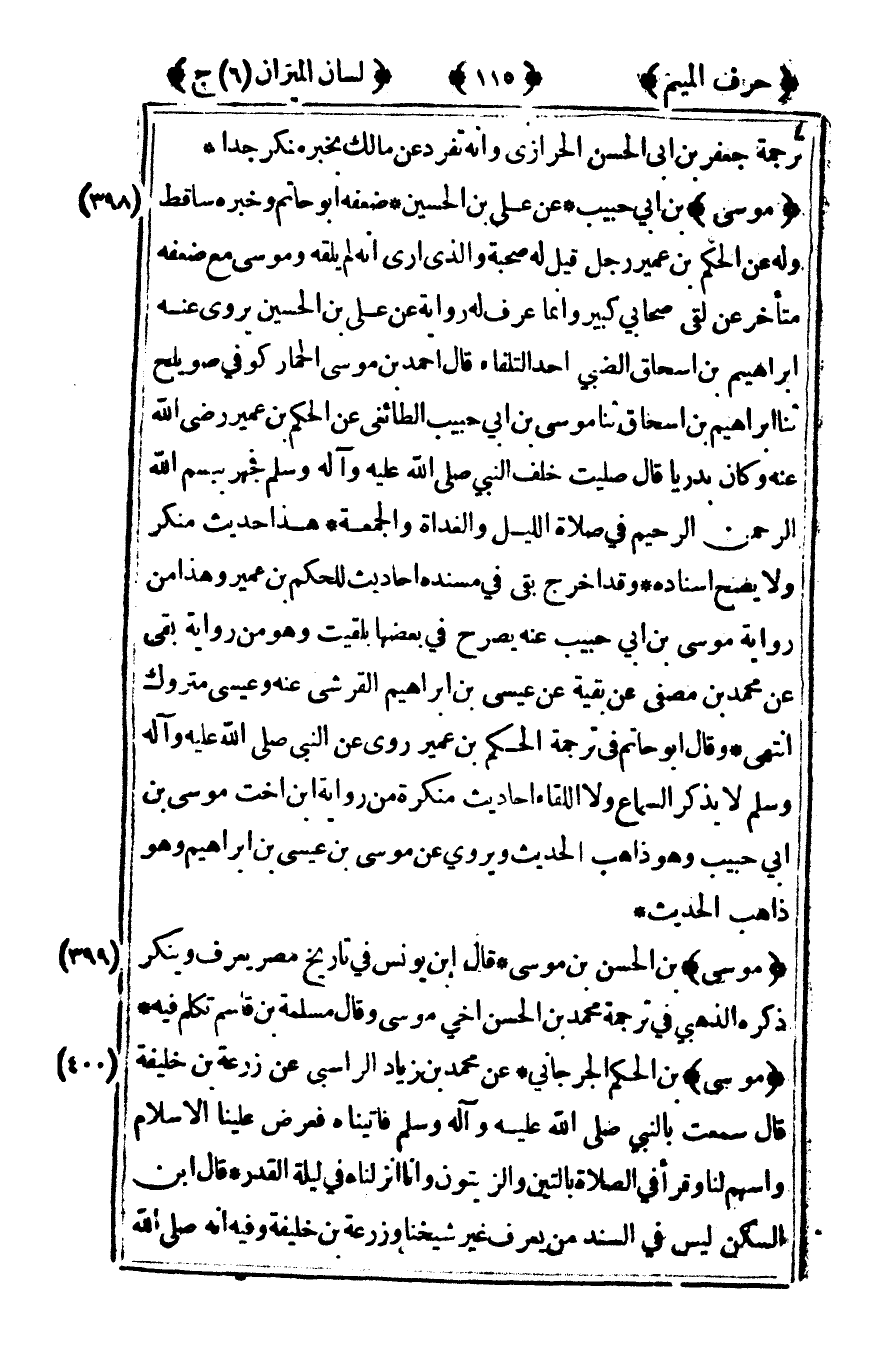 ﴿ حرف الميم ﴾ ﴿ ١١٥ ﴾ ﴿ لسان الميزان (٦) ج ﴾
ترجمة جعفر بن ابى الحسن الحرازى وانه تفرد عن مالك بخبره منكر جدا *
﴿ موسى ﴾ بن ابي حبيب * عن علي بن الحسين * ضعفه ابو حاتم وخبره ساقط (٣٩٨)
وله عن الحكم بن عمير رجل قيل له صحبة والذى ارى انه لم يلقه وموسى مع ضعفه
متأخر عن لقى صحابي كبير وانما عرف له رواية عن علي بن الحسين يروى عنه
ابراهيم بن اسحاق الضبي احد التلفاء قال احمد بن موسى الحمار كوفي صويلح
ثنا ابراهيم بن اسحاق ثنا موسى بن ابي حبيب الطائفى عن الحكم بن عمير رضى الله
عنه وكان بدريا قال صليت خلف النبي صلى الله عليه وآله وسلم فجهر ببسم الله
الرحمن الرحيم في صلاة الليل والغداة والجمعة * هذا حديث منكر
ولا يصح اسناده * وقد اخرج بقى في مسنده احاديث للحكم بن عمير وهذا من
رواية موسى بن ابي حبيب عنه يصرح في بعضها بلقيت وهو من رواية بقى
عن محمد بن مصفى عن بقية عن عيسى بن ابراهيم القرشى عنه وعيسى متروك
انتهى * وقال ابو حاتم فى ترجمة الحكم بن عمير روى عن النبى صلى الله عليه وآله
وسلم لا يذكر السماع ولا اللقاء احاديث منكرة من رواية ابن اخت موسى بن
ابي حبيب وهو ذاهب الحديث ويروي عن موسى بن عيسى بن ابراهيم وهو
ذاهب الحديث *
﴿ موسى ﴾ بن الحسن بن موسى * قال ابن يونس في تاريخ مصر يعرف وينكر (٣٩٩)
ذكره الذهبي في ترجمة محمد بن الحسن اخي موسى وقال مسلمة بن قاسم تكلم فيه *
﴿ موسى ﴾ بن الحكم الجرجاني * عن محمد بن زياد الراسبى عن زرعة بن خليفة (٤٠٠)
قال سمعت بالنبي صلى الله عليه وآله وسلم فاتيناه فعرض علينا الاسلام
واسهم لنا وقرأ في الصلاة بالتين والزيتون وانا انزلناه في ليلة القدر * قال ابن
السكن ليس في السند من يعرف غير شيخنا وزرعة بن خليفة وفيه انه صلى الله